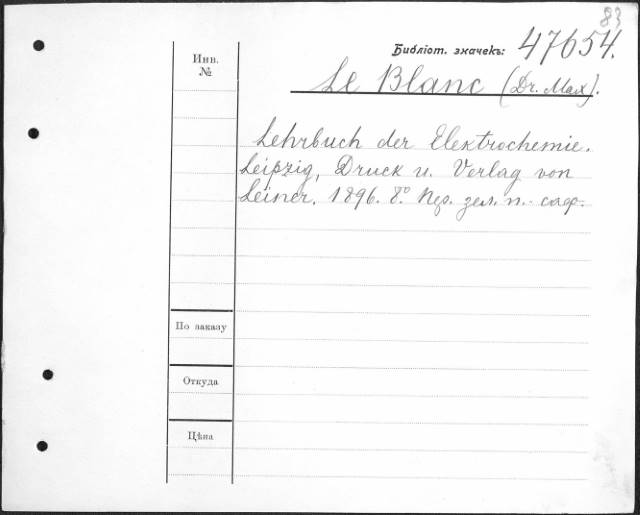 83
Библіот. значекъ: 47654.
Инв.
№
Le Blanc (Dr. Max).
Lehrbuch der Elektrochemie.
Leipzig, Druck u. Verlag von
Leiner. 1896. 8° Пер. зел. п. - саф.
По заказу
Откуда
Цѣна